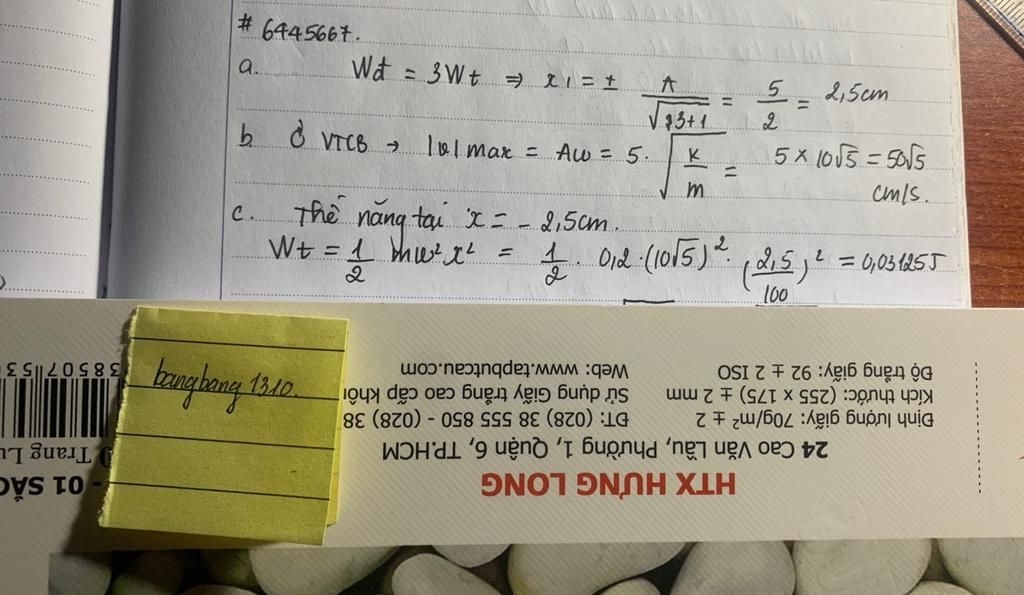 # 6445667.
a. Wđ = 3Wt ⇒ x1 = ± A/√(3+1) = 5/2 = 2,5cm
b Ở VTCB → |v|max = Aω = 5. √(k/m) = 5 × 10√5 = 50√5
cm/s.
c. Thế năng tại x = - 2,5cm.
Wt = 1/2 mω²x² = 1/2 . 0,2.(10√5)². (2,5/100)² = 0,03125J
bangbang 1310.
HTX HƯNG LONG
24 Cao Văn Lầu, Phường 1, Quận 6, TP.HCM
Định lượng giấy: 70g/m² ± 2
Kích thước: (255 x 175) ± 2 mm
Độ trắng giấy: 92 ± 2 ISO
ĐT: (028) 38 555 850 - (028) 38
Sử dụng Giấy trắng cao cấp
Web: www.tapbutcau.com
- 01
Trang